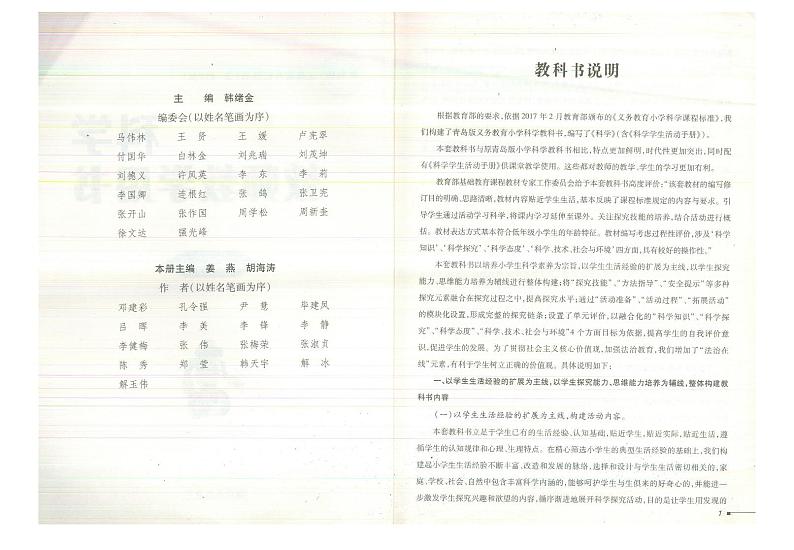 主 编 韩绪金
编委会(以姓名笔画为序)
马伟林 王 贤 王 媛 卢宪翠
付国华 白林金 刘兆瑞 刘茂坤
刘德义 许凤英 李 东 李 莉
李国卿 连根红 张 鸽 张卫宪
张开山 张作国 周学松 周新奎
徐文达 强光峰
本册主编 姜 燕 胡海涛
作 者(以姓名笔画为序)
邓建彩 孔令强 尹 竟 毕建凤
吕 晖 李 美 李 锋 李 静
李健梅 张 伟 张梅荣 张淑贞
陈 秀 郑 莹 韩天宇 解 冰
解玉伟
教科书说明
根据教育部的要求,依据 2017 年 2 月教育部颁布的《义务教育小学科学课程标准》,我
们构建了青岛版义务教育小学科学教科书,编写了《科学》(含《科学学生活动手册》)。
本套教科书与原青岛版小学科学教科书相比,特点更加鲜明,时代性更加突出,同时配
有《科学学生活动手册》供课堂教学使用。这些都对教师的教学、学生的学习更加有利。
教育部基础教育课程教材专家工作委员会给予本套教科书高度评价:“该套教材的编写修
订目的明确、思路清晰,教材内容贴近学生生活,基本反映了课程标准规定的内容与要求。引
导学生通过活动学习科学,将课内学习延伸至课外。关注探究技能的培养,结合活动进行概
括。教材表达方式基本符合低年级小学生的年龄特征。教材编写考虑过程性评价,涉及‘科学
知识’、‘科学探究’、‘科学态度’、‘科学、技术、社会与环境’四方面,具有较好的操作性。”
本套教科书以培养小学生科学素养为宗旨,以学生生活经验的扩展为主线,以学生探究
能力、思维能力培养为辅线进行整体构建;将“探究技能”、“方法指导”、“安全提示”等多种
探究元素融合在探究过程之中,提高探究水平;通过“活动准备”、“活动过程”、“拓展活动”
的模块化设置,形成完整的探究链条;设置了单元评价,以融合化的“科学知识”、“科学探
究”、“科学态度”、“科学、技术、社会与环境”4 个方面目标为依据,提高学生的自我评价意
识,促进学生的发展。为了贯彻社会主义核心价值观,加强法治教育,我们增加了“法治在
线”元素,有利于学生树立正确的价值观。具体说明如下:
一、以学生生活经验的扩展为主线,以学生探究能力、思维能力培养为辅线,整体构建教
科书内容
(一)以学生生活经验的扩展为主线,构建活动内容。
本套教科书立足于学生已有的生活经验、认知基础,贴近学生,贴近实际,贴近生活,遵
循学生的认知规律和心理、生理特点。在精心筛选小学生的典型生活经验的基础上,我们构
建起小学生活经验不断丰富、改造和发展的脉络,选择和设计与学生生活密切相关的,家
庭、学校、社会、自然中包含丰富科学内涵的,能够呵护学生与生俱来的好奇心的,并能进一
步激发学生探究兴趣和欲望的内容,循序渐进地展开科学探究活动,目的是让学生用发现的
1